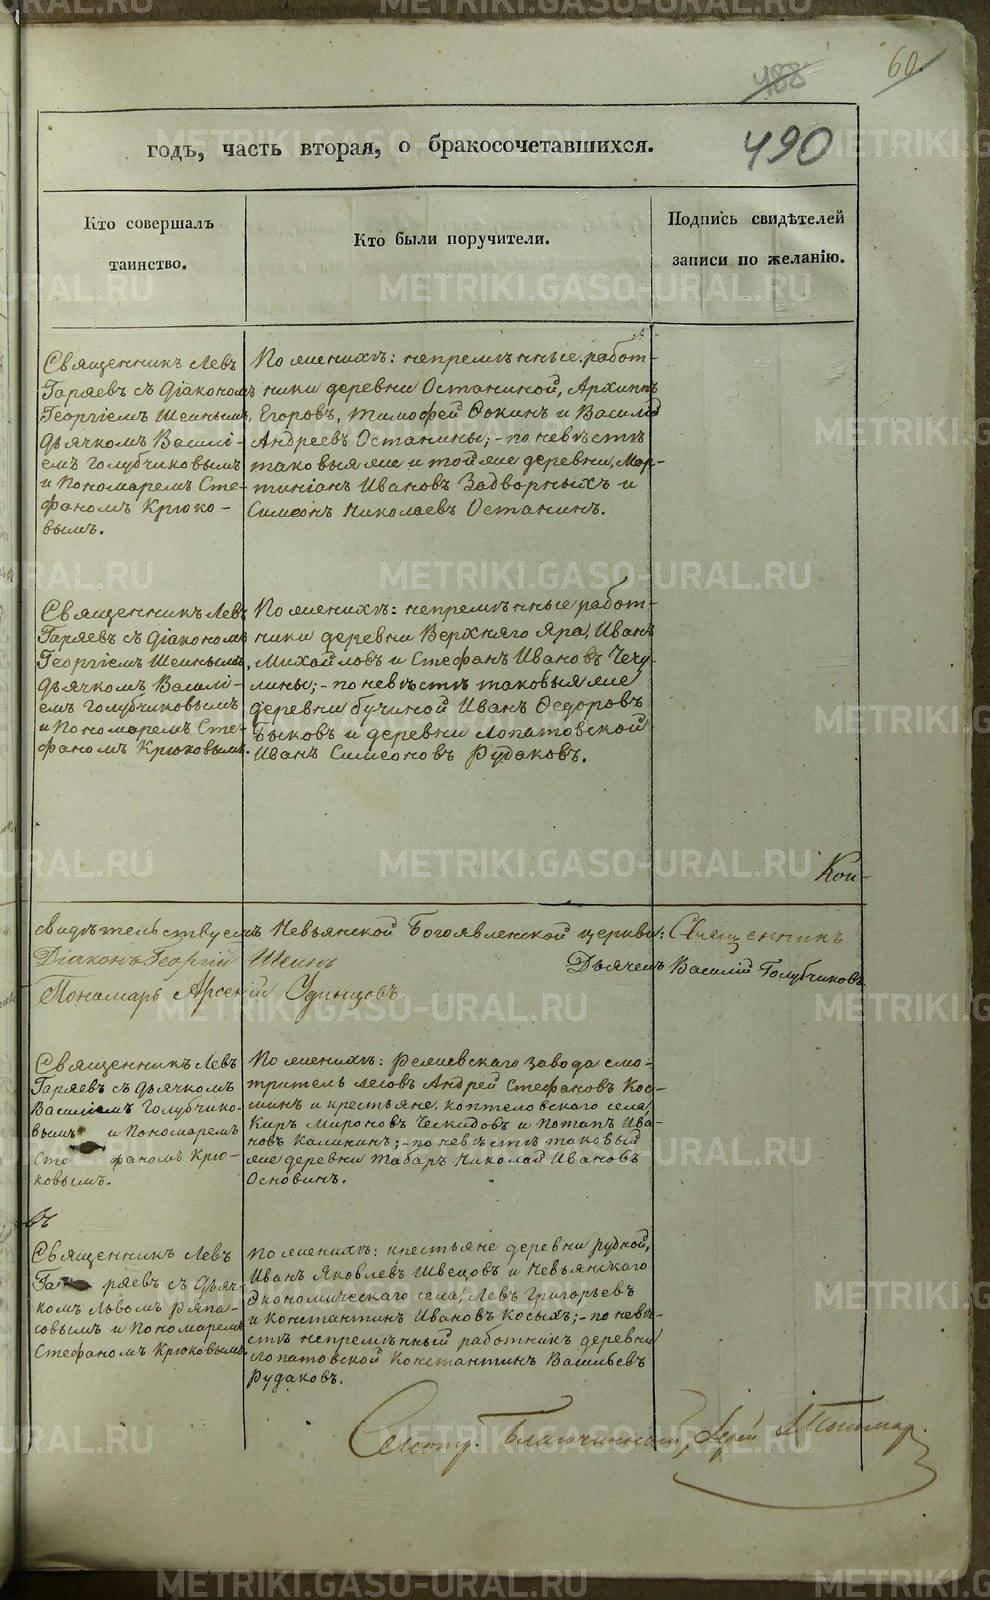 METRIKI.GASO-URAL.RU
488
60.
490
годъ, часть вторая, о бракосочетавшихся.
Кто совершалъ
таинство.
Кто были поручители.
Подпись свидѣтелей
записи по желанію.
Священникъ Левъ
Гаряевъ съ Діакономъ
Георгіемъ Шеинымъ,
дьячкомъ Василі-
емъ Голубчиковымъ
и Пономаремъ Сте-
фаномъ Крюко-
вымъ.
По женихѣ: непремѣнные работ-
ники деревни Останиной, Архиппъ
Егоровъ, Тимофей Ѳокинъ и Василій
Андреевъ Останины; - по невѣстѣ
таковыя же и той же деревни, Мар-
тиніанъ Ивановъ Задворныхъ и
Симеонъ Николаевъ Останинъ.
Священникъ Левъ
Гаряевъ съ Діакономъ
Георгіемъ Шеинымъ,
дьячкомъ Василі-
емъ Голубчиковымъ
и Пономаремъ Сте-
фаномъ Крюковымъ.
По женихѣ: непремѣнные работ-
ники деревни Верхняго Яра, Иванъ
Михайловъ и Стефанъ Ивановъ Чечу-
лины; - по невѣстѣ таковыя же
деревни Бучиной Иванъ Ѳедоровъ
Быковъ и деревни Лопатовской
Иванъ Симеоновъ Рудаковъ.
Коп-
свидѣтельствуемъ Невьянской Богоявленской церкви: Священникъ
Діаконъ Георгій Шеинъ Дьячекъ Василій Голубчиковъ
Пономарь Арсеній Удинцовъ.
Священникъ Левъ
Гаряевъ съ дьячкомъ
Василіемъ Голубчико-
вымъ и Пономаремъ
Сте фаномъ Крю-
ковымъ.
По женихѣ: Режевскаго завода смо-
тритель лесовъ Андрей Стефановъ Кос-
минъ и крестьяне, коптеловскаго села,
Киръ Мироновъ Ческидовъ и Потапъ Ива-
новъ Калининъ; - по невѣстѣ таковый
же деревни Табаръ Николай Ивановъ
Основинъ.
Священникъ Левъ
Га ряевъ съ дьяч-
комъ Львомъ Ряпа-
совымъ и Пономаремъ
Стефаномъ Крюковымъ.
По женихѣ: крестьяне деревни рудной,
Иванъ Яковлевъ Швецовъ и Невьянскаго
Экономическаго села, Левъ Григорьевъ
и Константинъ Ивановъ Косыхъ; - по невѣ-
стѣ непремѣнный работникъ деревни
Лопатовской Константинъ Васильевъ
Рудаковъ.
Благочинный, Іерей